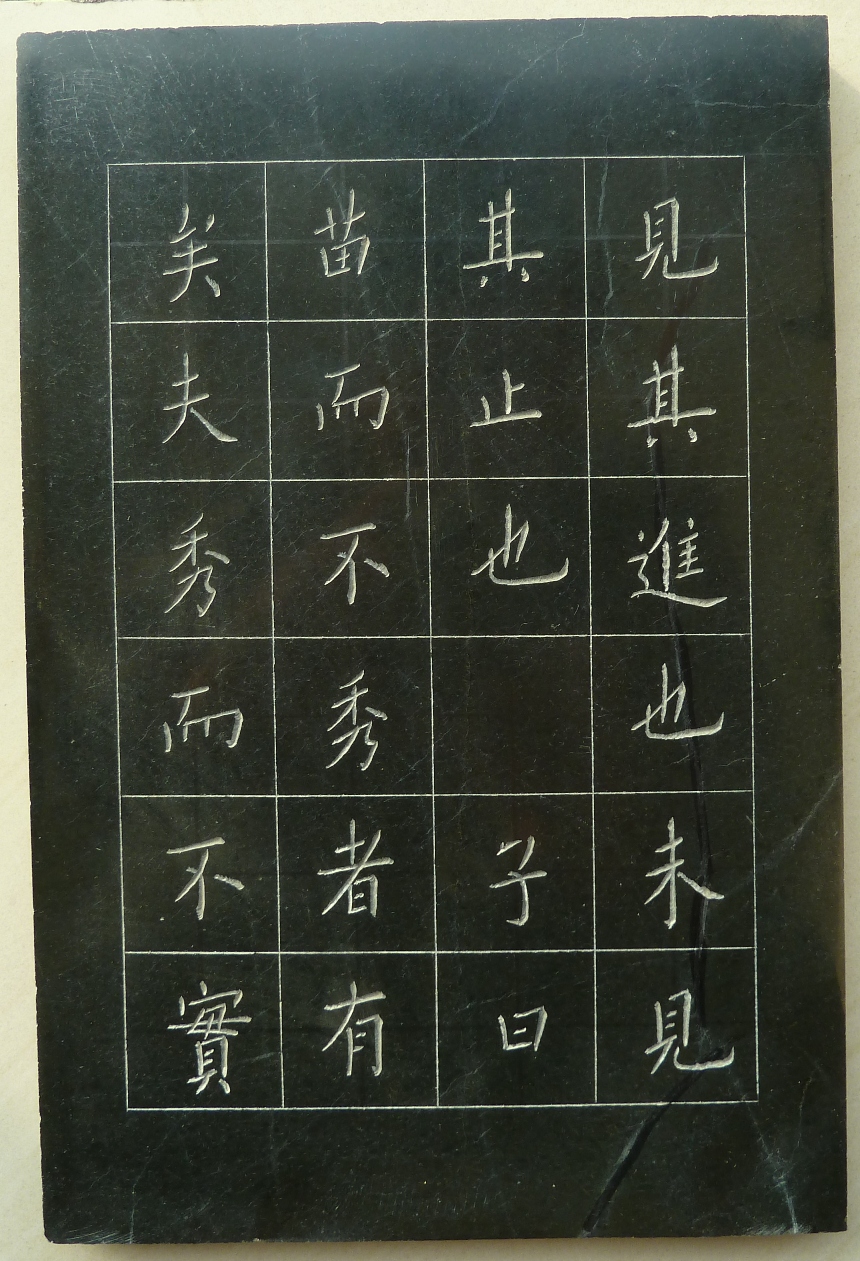 見其進也未見
其止也　子曰
苗而不秀者有
矣夫秀而不實